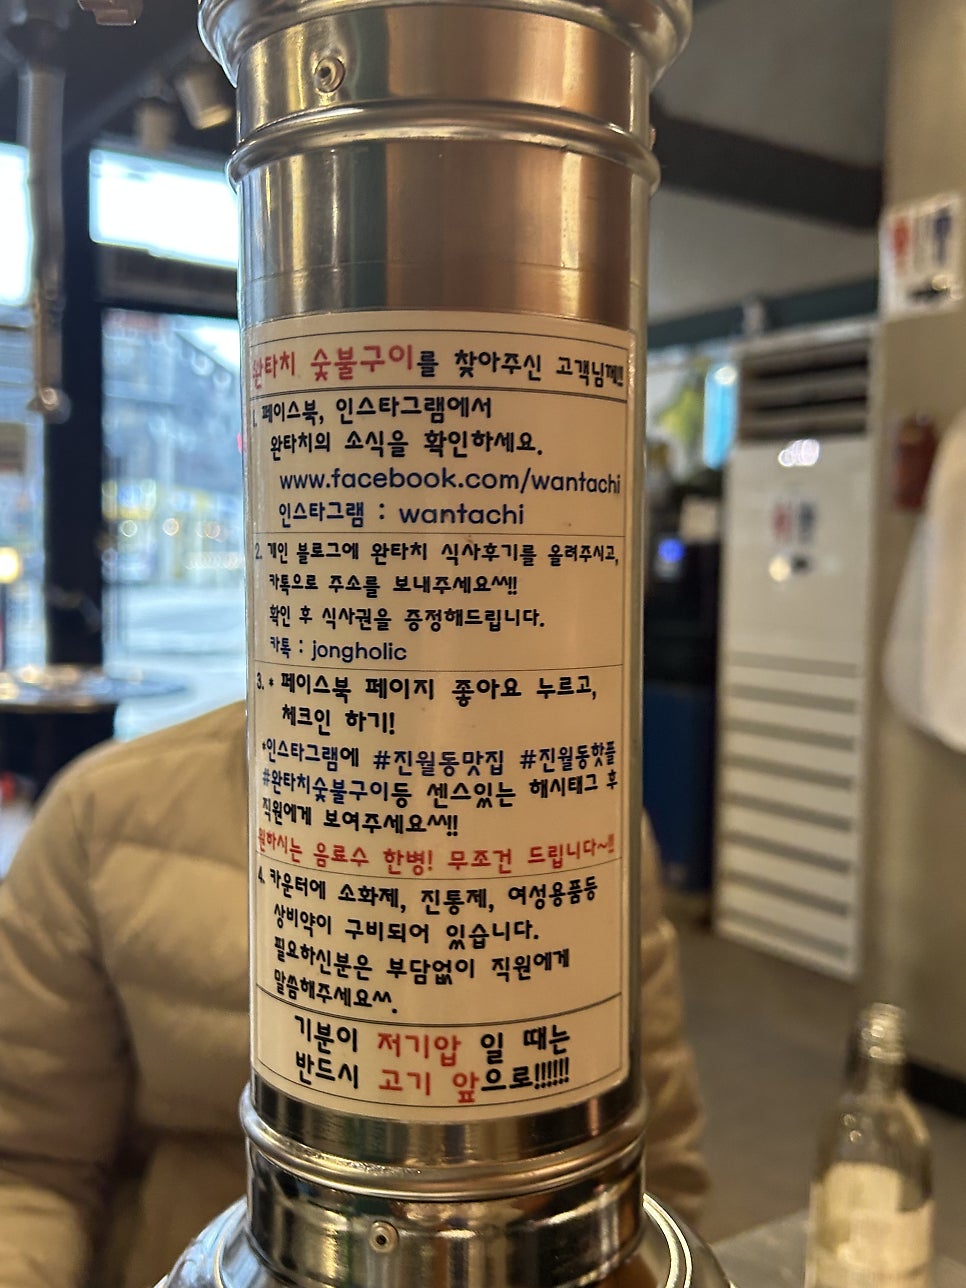 완타치 숯불구이를 찾아주신 고객님께!!
1. 페이스북, 인스타그램에서
완타치의 소식을 확인하세요.
www.facebook.com/wantachi
인스타그램 : wantachi
2. 개인 블로그에 완타치 식사후기를 올려주시고,
카톡으로 주소를 보내주세요^^!!
확인 후 식사권을 증정해드립니다.
카톡 : jongholic
3. * 페이스북 페이지 좋아요 누르고,
체크인 하기!
*인스타그램에 #진월동맛집 #진월동핫플
#완타치숯불구이등 센스있는 해시태그 후
직원에게 보여주세요^^!!
원하시는 음료수 한병! 무조건 드립니다~!!
4. 카운터에 소화제, 진통제, 여성용품등
상비약이 구비되어 있습니다.
필요하신분은 부담없이 직원에게
말씀해주세요^^.
기분이 저기압 일 때는
반드시 고기 앞으로!!!!!!